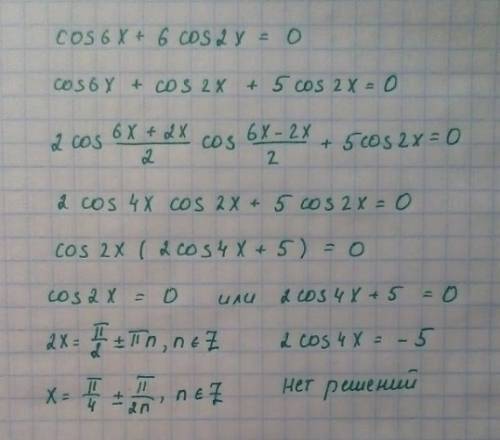 cos6x + 6 cos2x = 0
cos6x + cos 2x + 5 cos 2x = 0
2 cos (6x + 2x)/2 cos (6x - 2x)/2 + 5cos2x = 0
2 cos 4x cos 2x + 5 cos 2x = 0
cos 2x ( 2cos4x + 5 ) = 0
cos2x = 0 или 2cos4x + 5 = 0
2x = π/2 ± πn, n ∈ Z 2 cos4x = -5
x = π/4 ± π/2n, n ∈ Z нет решений